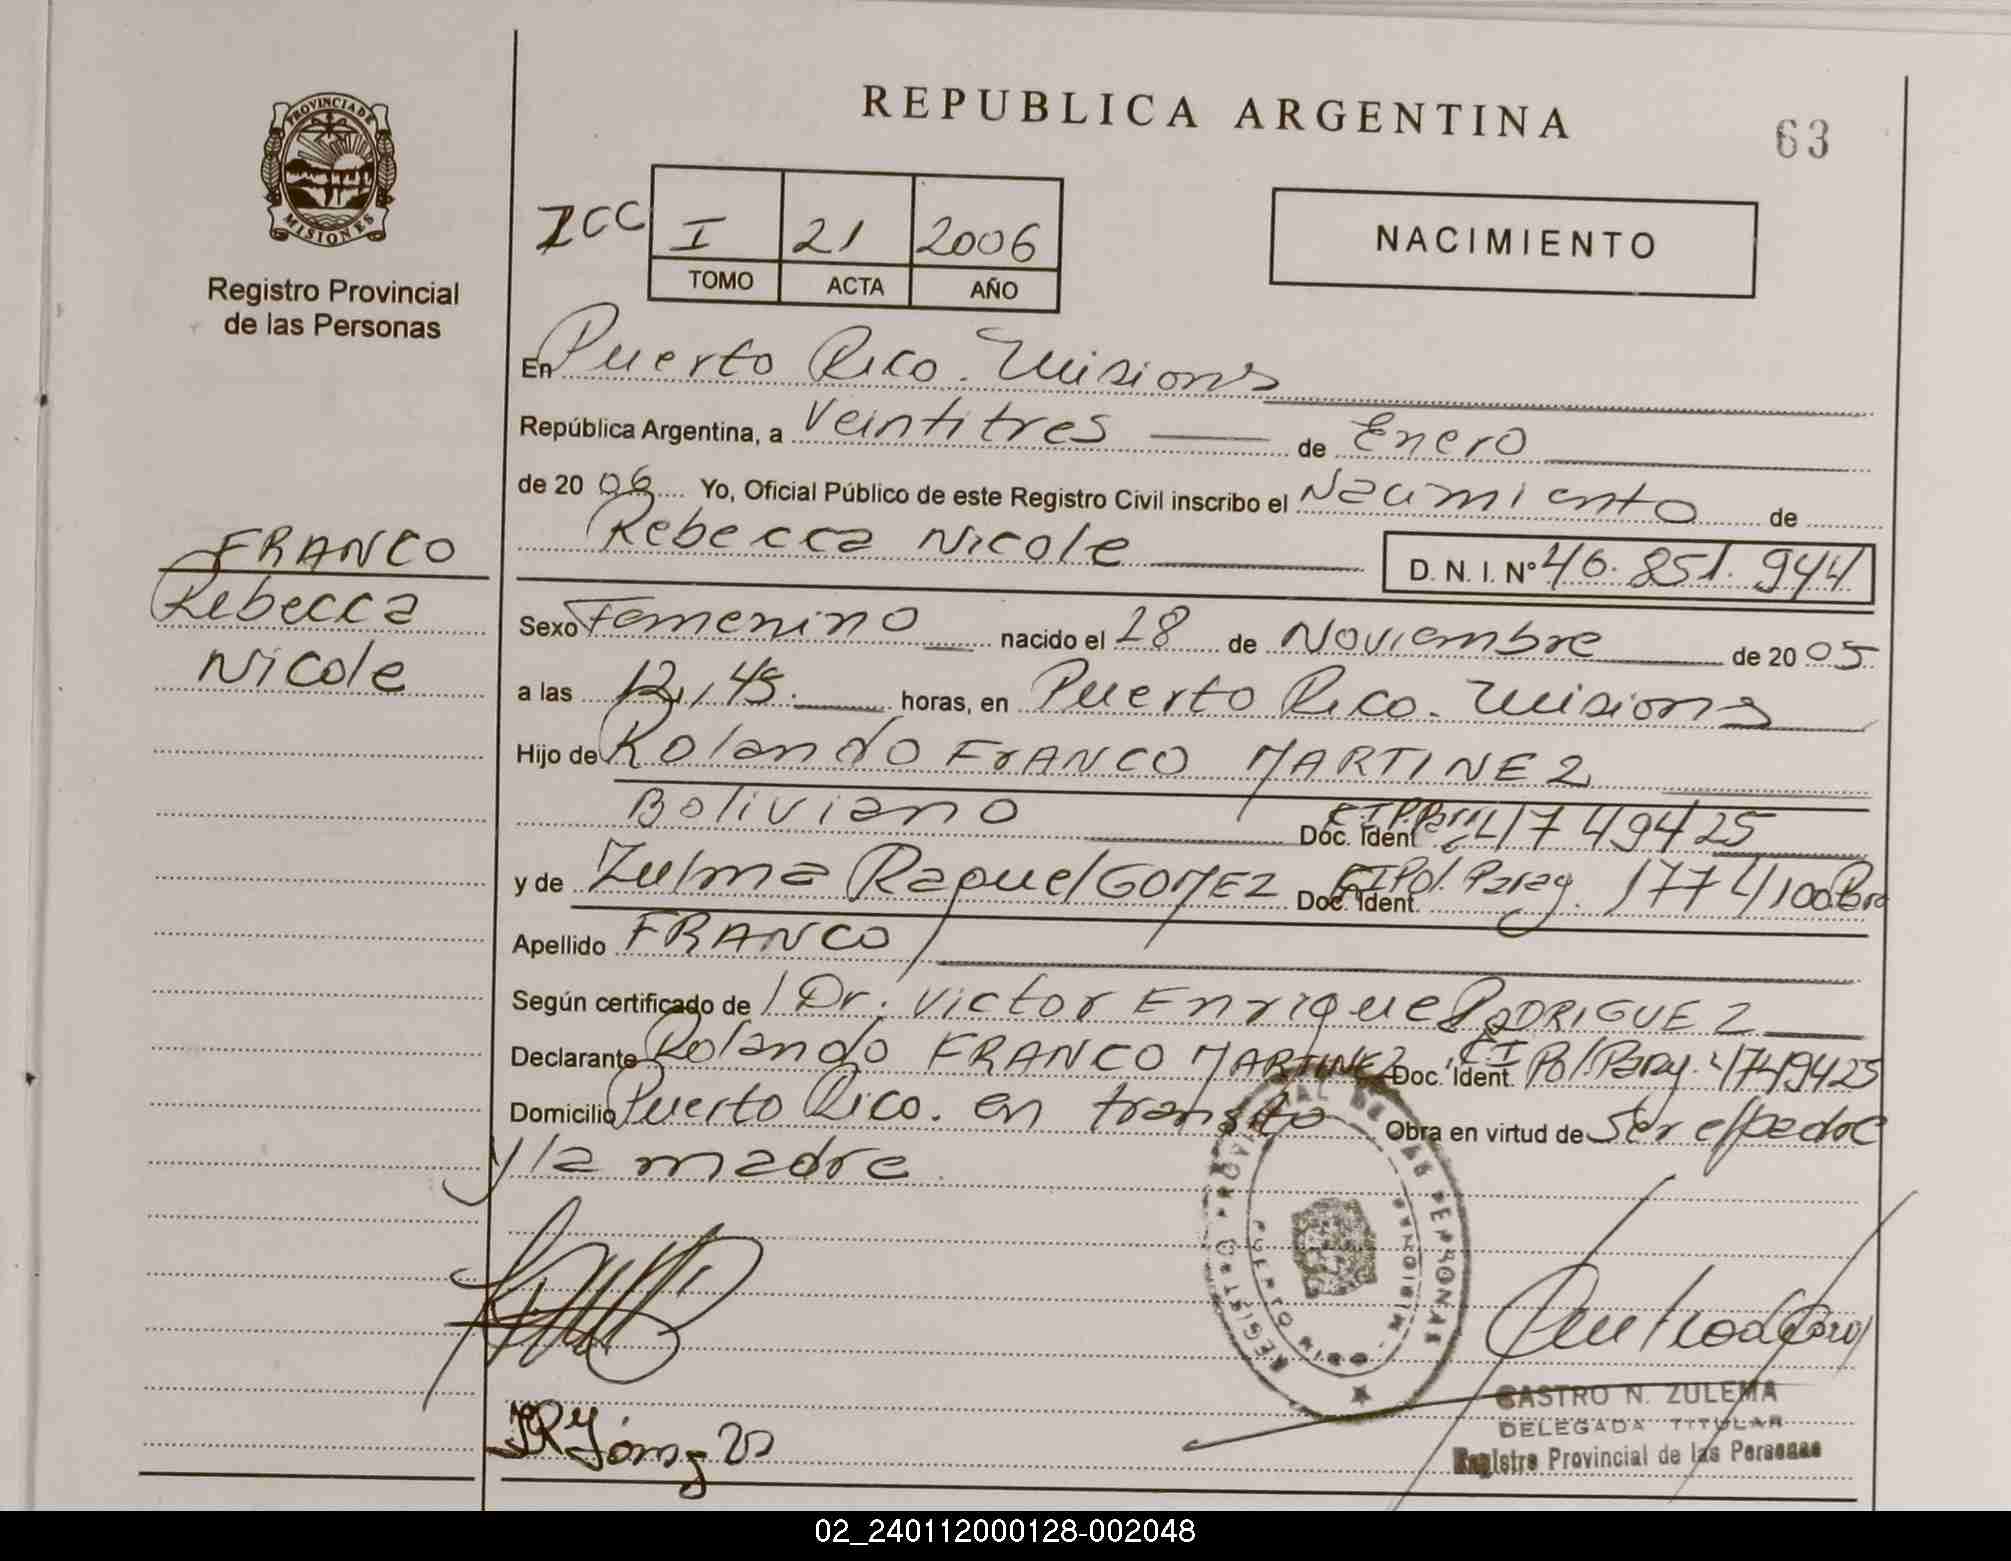 REPUBLICA ARGENTINA
63
PROVINCIA DE
MISIONES
Registro Provincial
de las Personas
ICC I 21 2006
TOMO ACTA AÑO
NACIMIENTO
En Puerto Rico. Misiones
República Argentina, a Veintitres de Enero
de 20 06 Yo, Oficial Público de este Registro Civil inscribo el Nacimiento de
Rebecca Nicole D. N. I. N° 46.851.944
FRANCO
Rebecca
Nicole
Sexo Femenino nacido el 28 de Noviembre de 20 05
a las 12,45 horas, en Puerto Rico. Misiones
Hijo de Rolando FRANCO MARTINEZ
Boliviano Doc. Ident 4749425
y de Zulma Raquel GOMEZ Doc. Ident. CIPol. Parag. 1774100
Apellido FRANCO
Según certificado de / Dr. Victor Enrique RODRIGUEZ
Declarante Rolando FRANCO MARTINEZ Doc. Ident. CI Pol Parag. 4749425
Domicilio Puerto Rico. en transito Obra en virtud de Ser el padre
y la madre
REGISTRO PROVINCIAL DE LAS PERSONAS
PUERTO RICO - MISIONES
CASTRO N. ZULEMA
DELEGADA TITULAR
Registro Provincial de las Personas
02_240112000128-002048